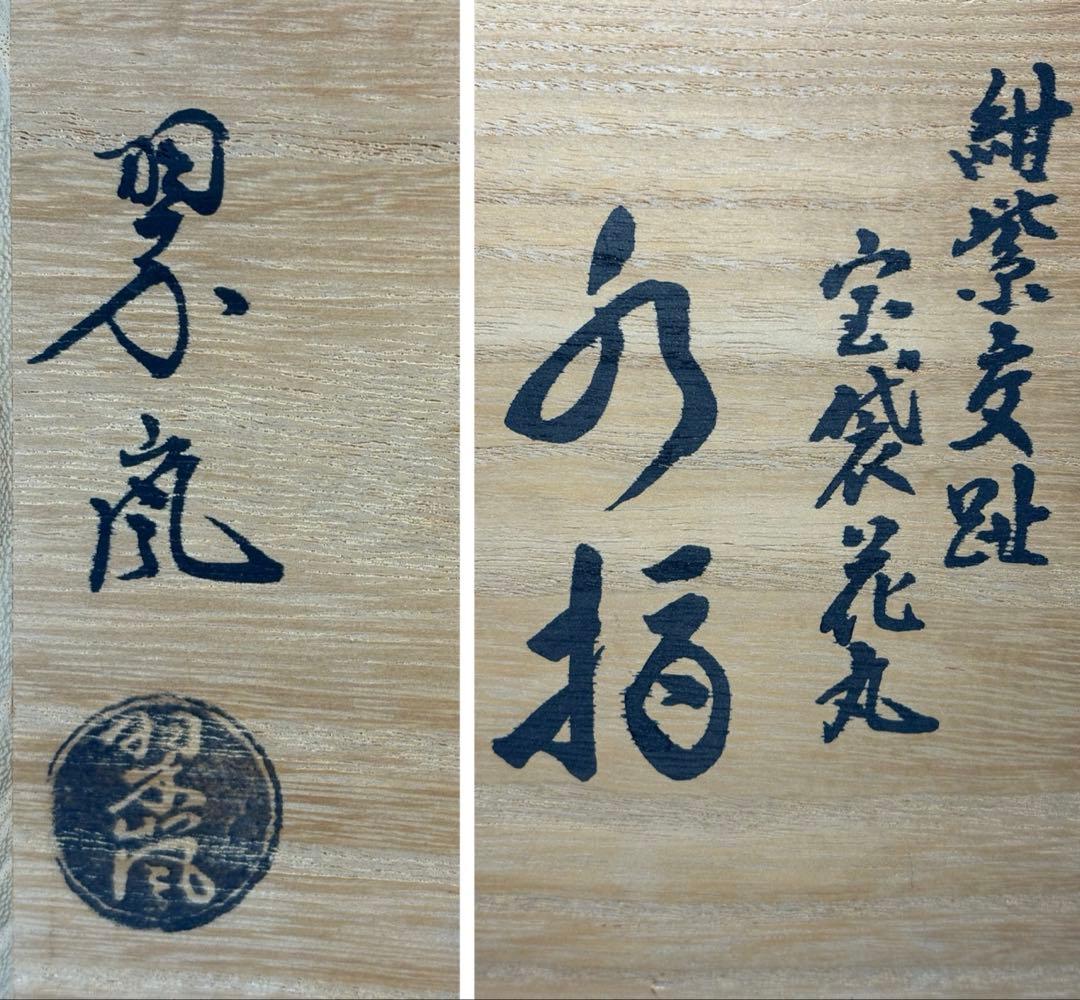 紺紫交趾
宝袋花丸
水指
翠嵐
翠嵐